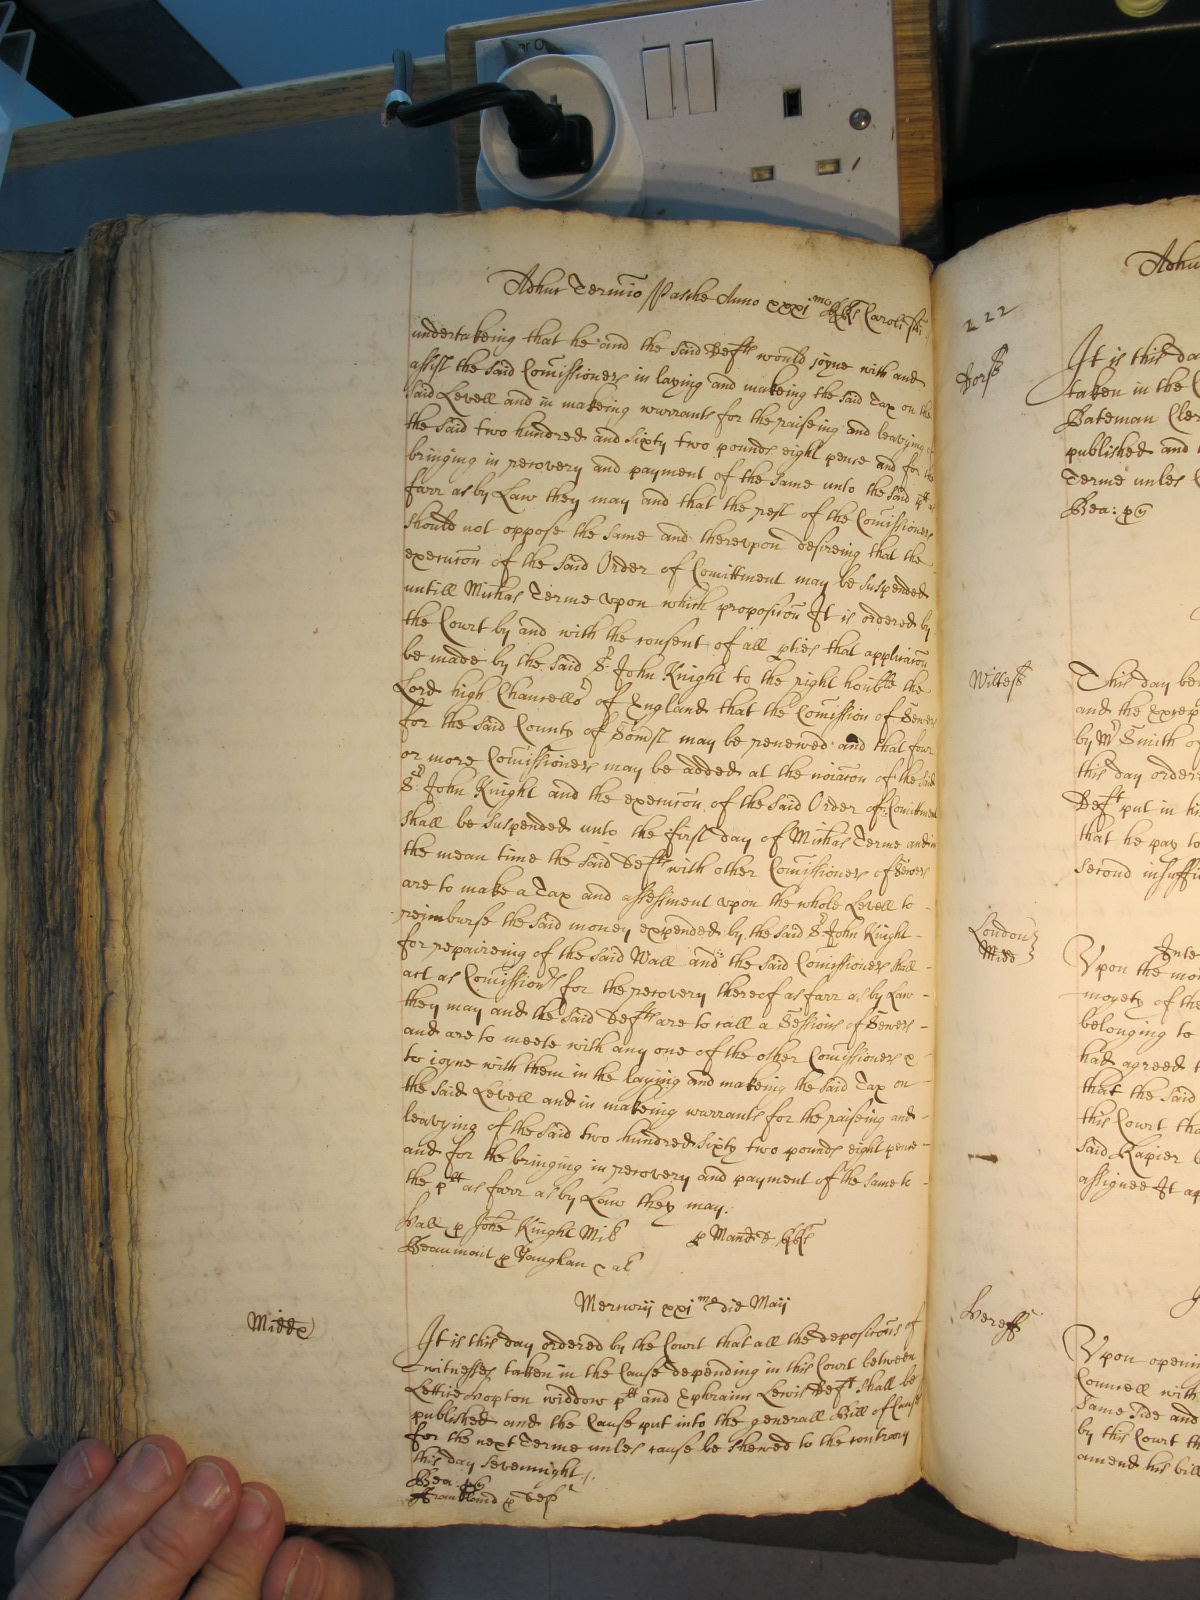 Adhuc Termio Pasche Anno xxxi mo RRs Caroli
undertakeing that he and the said Defts would joyne with and
assist the said Comissioners in laying and makeing the said Tax on the
said Levell and in makeing warrants for the raiseing and leavying
the said two hundred and sixty two pounds eight pence and for the
bringing in recovery and payment of the same unto the said plt
farr as by Law they may and that the rest of the Comissioners
should not oppose the same and therevpon desireing that the
execucon of the said Order of Comittment may be suspended
untill Michas Terme vpon which proposicon It is ordered by
the Court by and with the consent of all pties that applicacon
be made by the said Sr John Knight to the right honble the
Lord high Chancellor of England that the Comission of Sewers
for the said County of Somst may be renewed and that four
or more Comissioners may be added at the noiacon of the said
Sr John Knight and the execucon of the said Order of Comittment
shall be suspended unto the first day of Michas Terme and in
the mean time the said Defts with other Comissioners of Sewers
are to make a Tax and assessment vpon the whole Levell to
reimburse the said money expended by the said Sr John Knight
for repaireing of the said Wall and the said Comissioners shall
act as Comissionrs for the recovery thereof as farr as by Law
they may and the said Defts are to call a Sessions of Sewers
and are to meete with any one of the other Comissioners &
to joyne with them in the laying and makeing the said Tax on
the said Levell and in makeing warrants for the raiseing and
leavying of the said two hundred sixty two pounds eight pence
and for the bringing in recovery and payment of the same to
the plt as farr as by Law they may.
Hall p Johe Knight Mil p Mand
Beaumont p Vaughan & al
Mercurij xxi mo die Maij
Middx
It is this day ordered by the Court that all the deposicons of
witnesses taken in the Cause depending in this Court between
Lettice Hopton widdow plt and Ephraim Lewis Deft shall be
published and the Cause put into the generall Bill of Causes
for the next Terme unles cause be shewed to the contrary
this day sevennight
Bea: pQ
Frankland p Def
Adhu
222
Dorst
It is this da
taken in the C
Bateman Cler
published and t
Terme unles C
Bea: pQ
Wiltes
This day bei
and the Excep
by Mr Smith of
this day ordere
Deft put in hi
that he pay to
second insuffi
London
Midd
Inter
Vpon the mo
moyety of the
belonging to
had agreed t
that the said
this Court tha
said Rapier
assignee It ap
Hereff
Vpon openin
Councell with
same side and
by this Court th
amend his bill